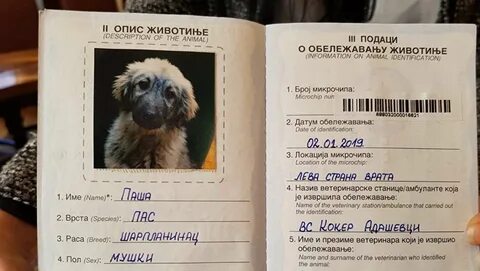 II ОПИС ЖИВОТИЊЕ
(DESCRIPTION OF THE ANIMAL)
1. Име (Name)*: ПАША
2. Врста (Species): ПАС
3. Раса (Breed): ШАРПЛАНИНАЦ
4. Пол (Sex): МУШКИ
III ПОДАЦИ
О ОБЕЛЕЖАВАЊУ ЖИВОТИЊЕ
(INFORMATION ON ANIMAL IDENTIFICATION)
1. Број микрочипа:
Microchip
2. Датум обележавања:
Date of identification:
02.01.2019
3. Локација микрочипа:
Location of microchip:
ЛЕВА СТРАНА ВРАТА
4. Назив ветеринарске станице/амбуланте која
је извршила обележавање:
Name of the veterinary station/ambulance that carried out
the identification:
ВС КОКЕР АДАШЕВЦИ
5. Име и презиме ветеринара који је извршио
обележавање:
Name and surname of the veterinarian who identified
the animal: